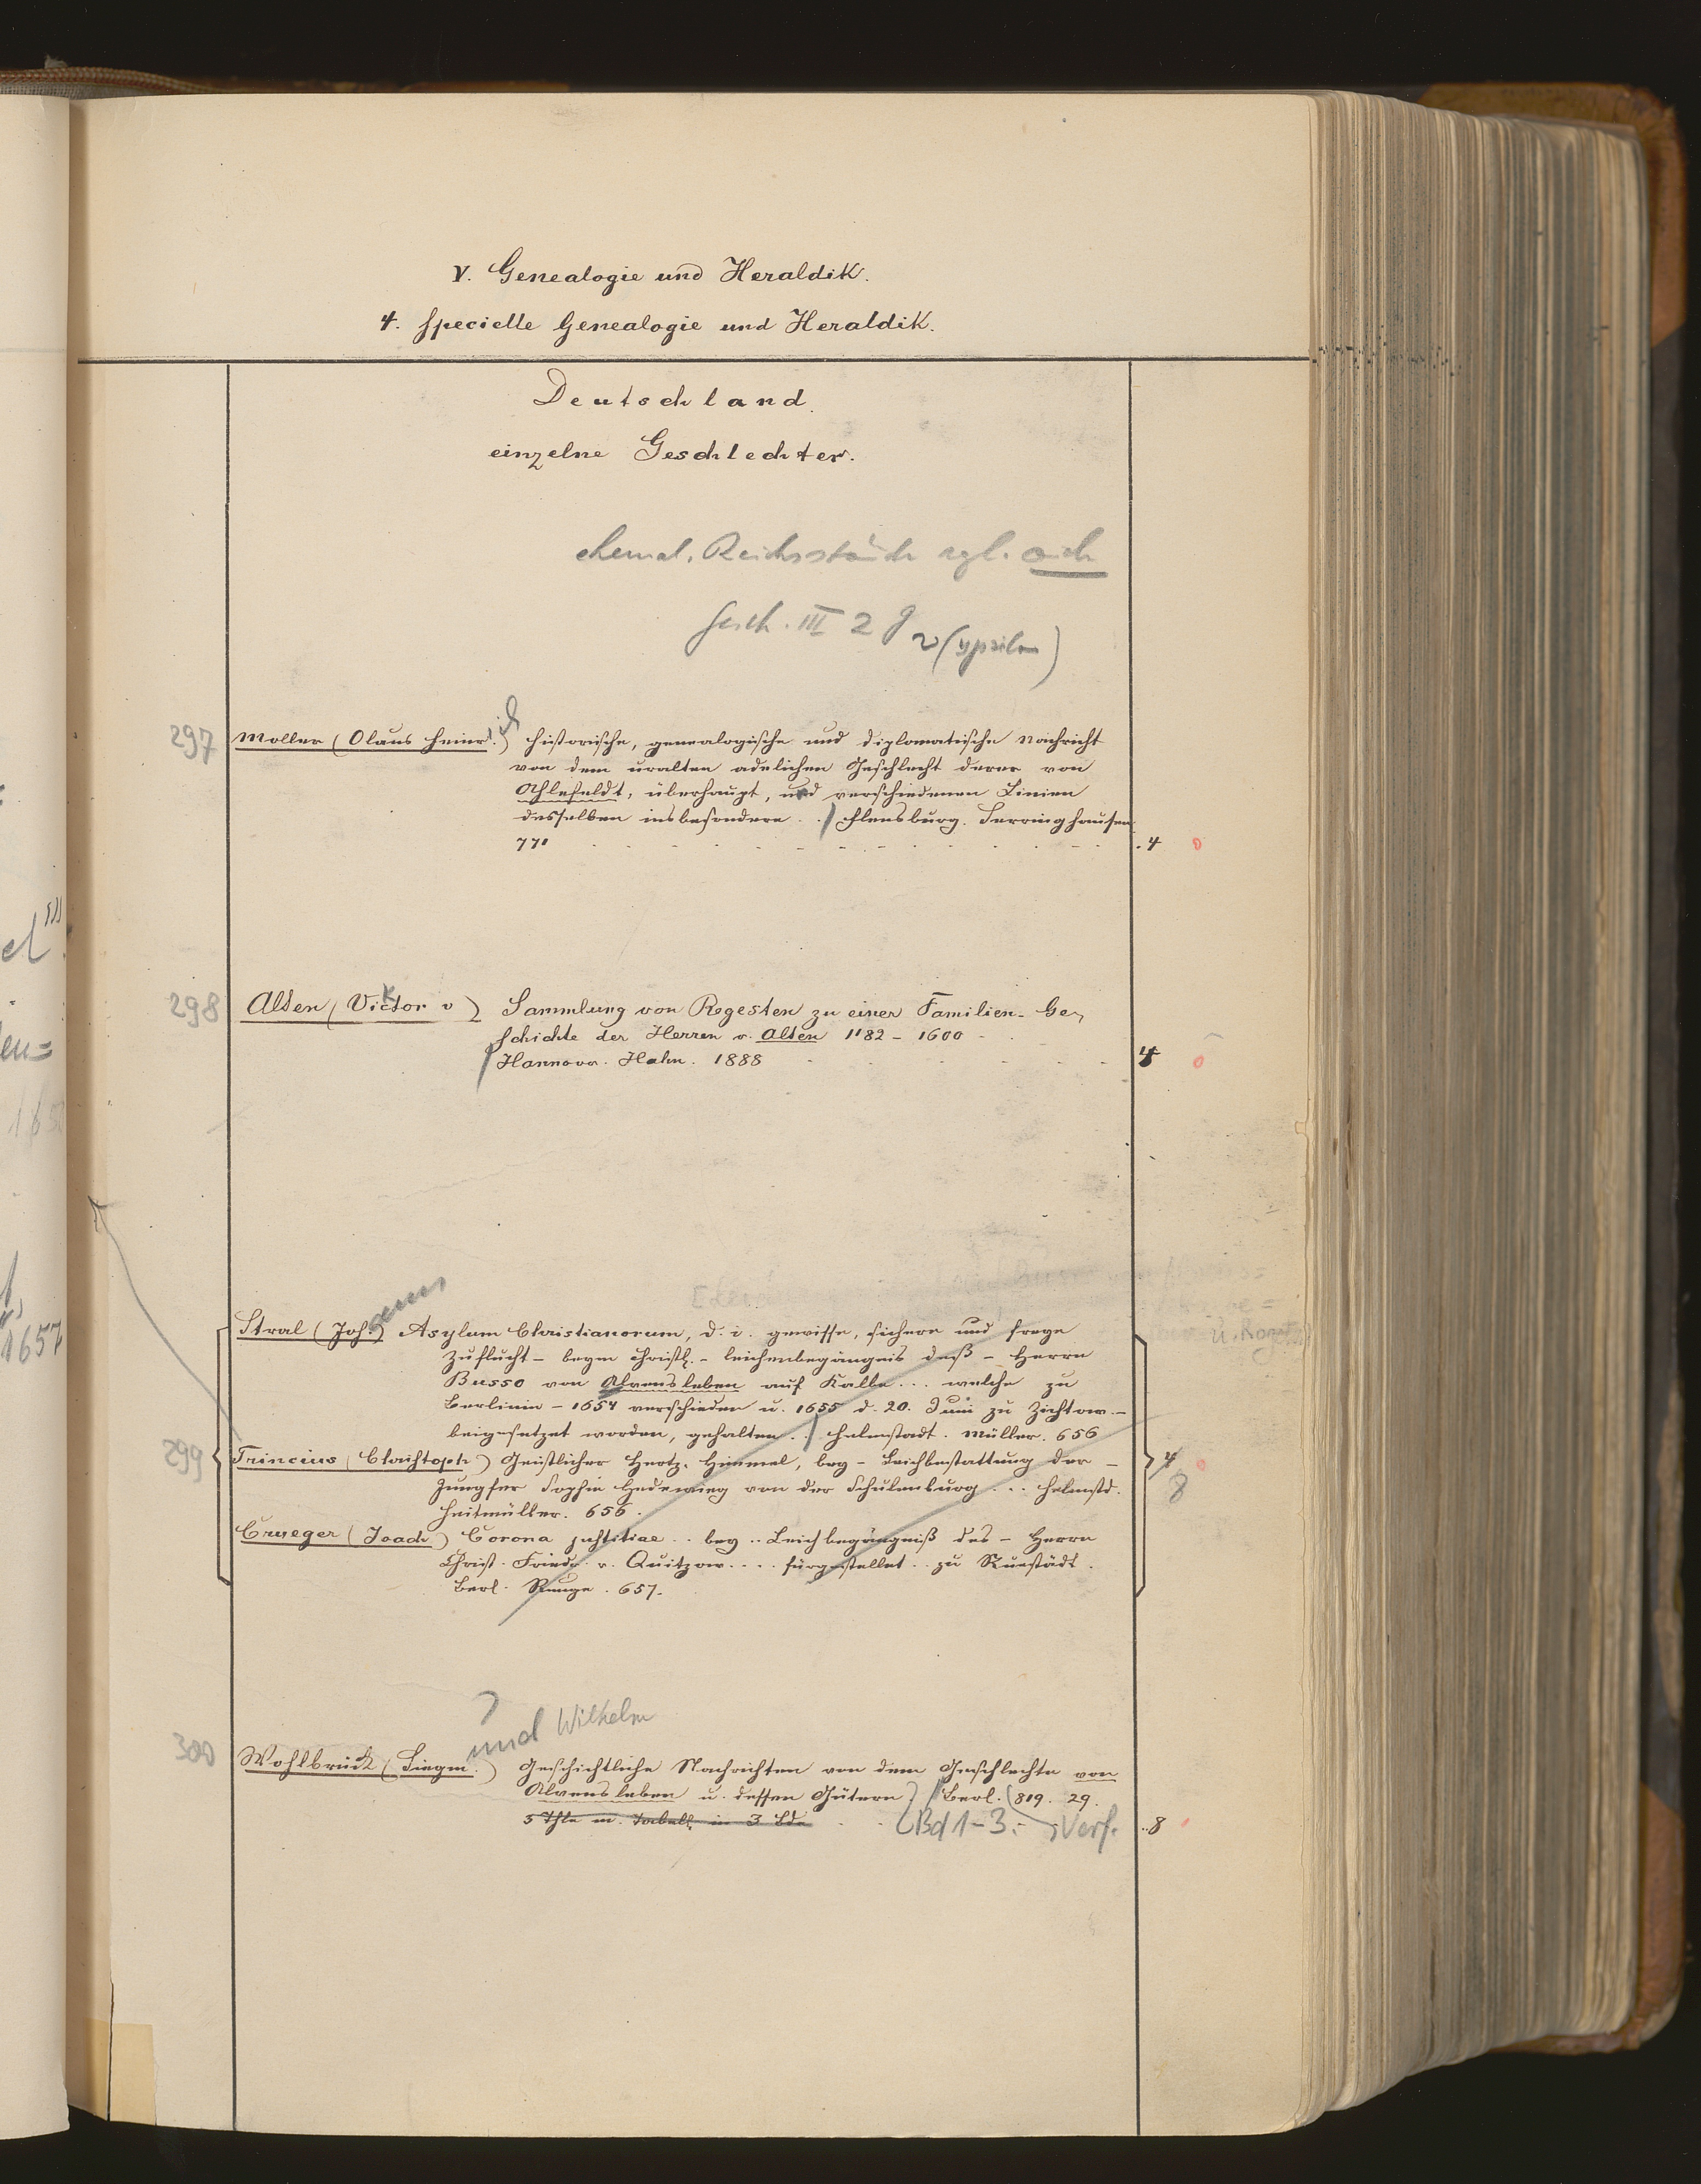 V. Genealogie und Heraldik.
4. Specielle Genealogie und Heraldik.
Deutschland.
einzelne Geschlechter.
ehemal. Reichsstände vgl. auch
Gesch. III 2 g
υ (ypsilon)
297 Moller (Olaus Heinr.) historische, genealogische und diplomatische Nachricht
von dem uralten adelichen Geschlecht derer von
Ahlefeldt, überhaupt, und verschiedenen Linien
desselben insbesondere . . / Flensburg. Serringhausen
771 4 0
298 Alten (Victor v) Sammlung von Regesten zu einer Familien-Ge-
k
schichte der Herren v. Alten 1182 - 1600
/ Hannover. Hahn. 1888 4 0
Stral (Joh.) Asylum Christianorum, d. i. gewisse, sichere und freye
annes
u. Rozat
Zuflucht - beym christl. - leichenbegängnis deß - Herrn
Busso von Alvensleben auf Kalbe ... welche zu
Berlinin - 1654 verschieden u. 1655 d. 20. Juni zu Zichtow -
beigesetzet worden, gehalten . . / Helmstadt. Müller. 656
299 Trincius (Christoph) Geistlicher Hertz-Himmel, bey - Leichbestattung der - 4
Jungfer Sophia Hedewieg von der Schulenburg ... Helmstd. 8
Heitmüller. 656.
Crueger (Joach) Corona justitiae .. bey .. Leichbegängniß des - Herrn
Christ. Friedr. v. Quitzow .... fürgestellet .. zu Ruestädt.
Berl. Runge. 657.
und Wilhelm
300 Wohlbrück (Siegm.) Geschichtliche Nachrichten von dem Geschlechte von
Alvensleben u. dessen Gütern / Berl. (819. 29.
5 Thle m. Tabell. in 3 Bde Bd 1-3: Verf. 8
el
en=
1657